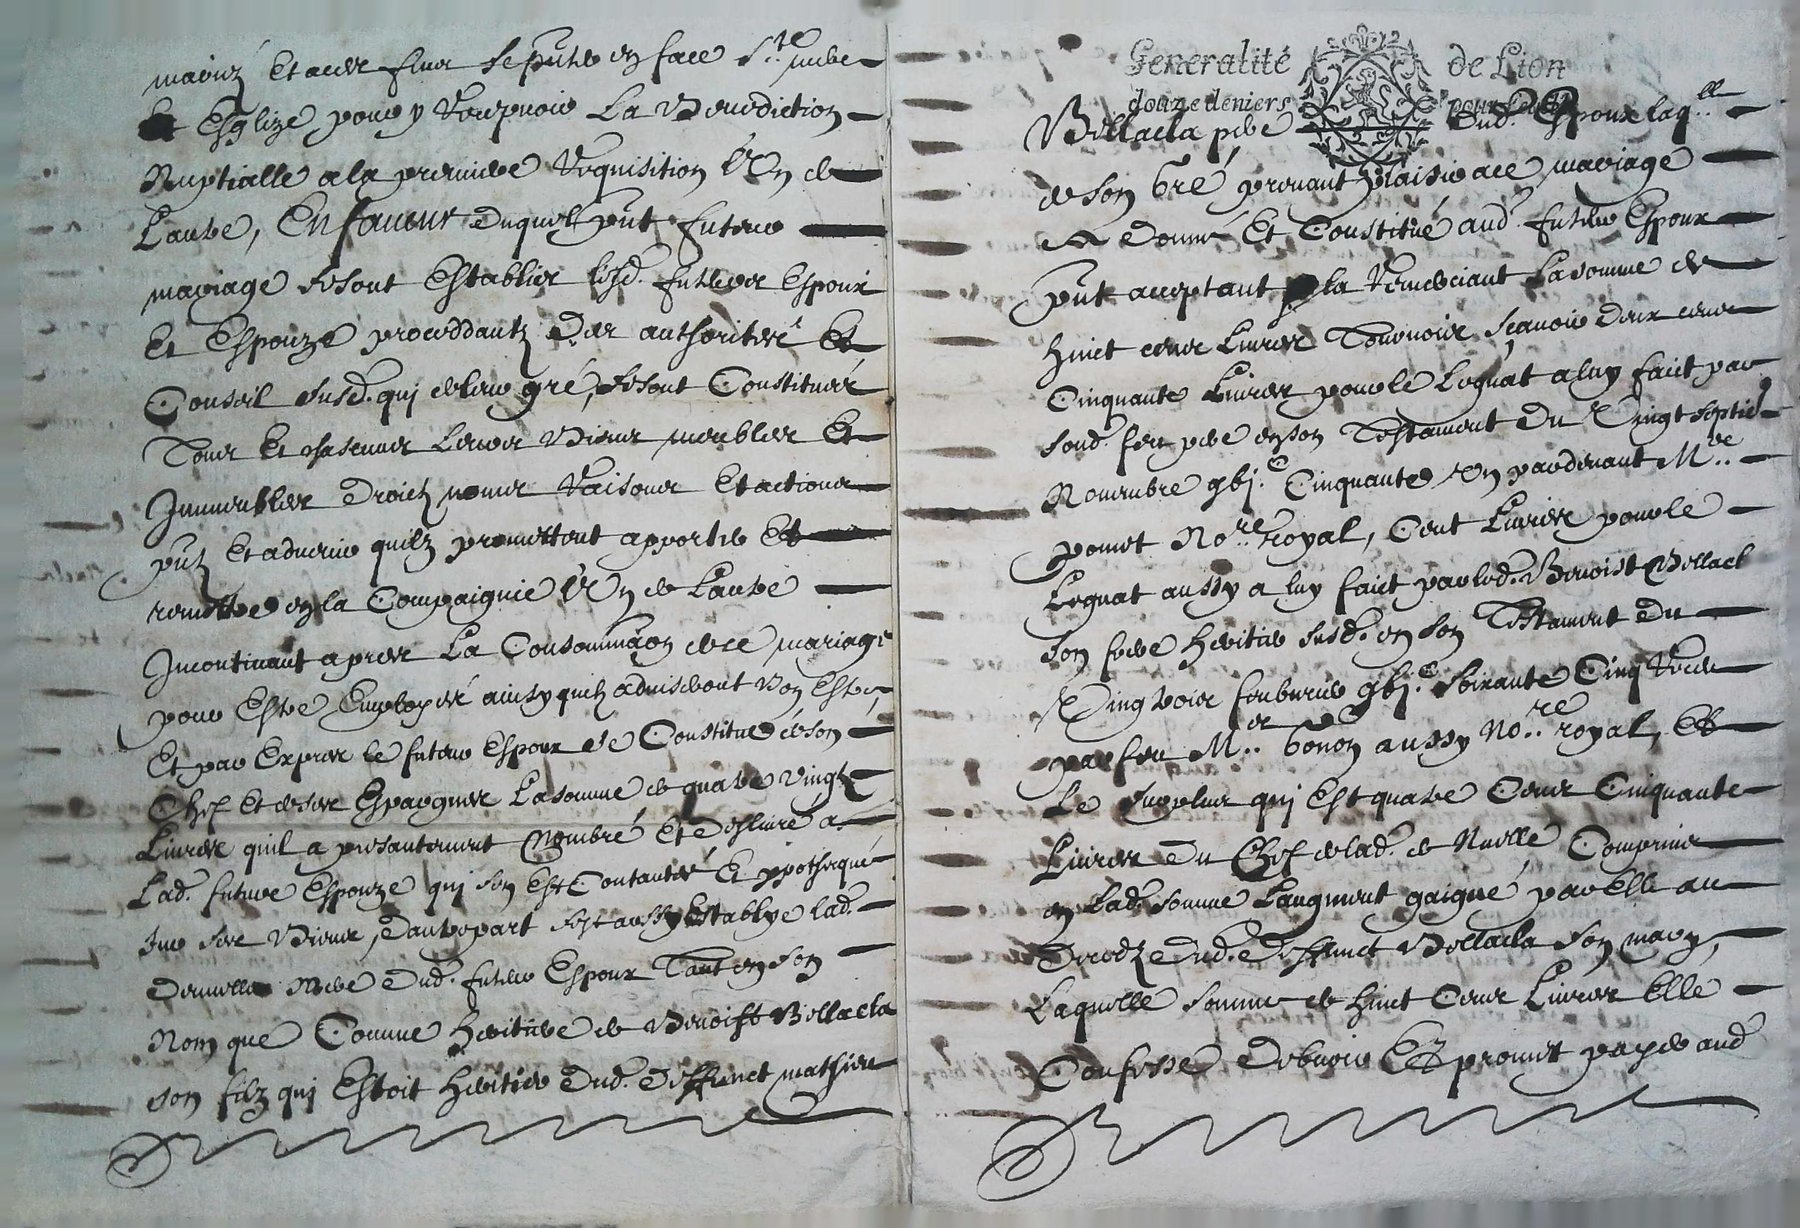 mariez Et acez fins se pnter en face Ste mere
Et Esglize pour y Recepvoir La Benediction
Nuptialle a la premiere Requisition L'Un de
Lautre, En faveur duquel pnt futeur
mariage se sont Establiez lesd. futeurs Espoux
Et Espouze proceddantz des authoritez Et
Conseil susd. qui de leur gré, se sont Constituez
Tous Et chascuns Leurs Biens meubles Et
Immeubles droictz noms Raisons Et actions
pntz Et advenir quilz promettent apporter Et
remettre en la Compaignie L'Un de Lautre
Incontinant apres La Consommaon de ce mariage
pour Estre Employez ainsy quilz adviseront Bon Estre,
Et par Expres le futeur Espoux se Constitue de son
Chef Et de ses Espargnes La somme de quatre vingtz
Livres quil a presentement Nombré Et deslivré a
Lad. future Espouze qui sen Est Contantée Et ypothequé
sur ses Biens, dautre part sest aussy Establye lad.
denuelle mere dud. futeur Espoux Tant en son
Nom que Comme heritiere de Benoist Bellacla
son filz qui Estoit heritier dud. deffunct mathieu
Generalité de Lion
douze deniers pour feuil
Bellacla pere dud. Espoux laqlle
de son Gré prenant plaisir a ce mariage
a donné Et Constitué aud. futeur Espoux
pnt acceptant la Remerciant La somme de
huict cens Livres Tournois sçavoir deux cens
Cinquante Livres pour le Legat a luy faict par
sond. feu pere en son Testament du Vingt septie
Novembre gbj.c Cinquante Un pardevant M.re
ponret No.re Royal, Cent Livres pour le
Legat aussy a luy faict par led. Benoist Bellacl
son frere heritier susd. en son Testament du
Vingtroies feuburier gbj.c Soixante Cinq Receu
par feu M.re Gonon aussy No.re royal, Et
Le surplus qui Est quatre Cens Cinquante
Livres du Chef de lad. de Nuelle Comprins
en Lad. somme Laugment gaigné par Elle au
decedz dud. deffunct Bellacla son mary,
Laquelle somme de huict Cens Livres Elle
Confesse debvoir Et promet payer aud